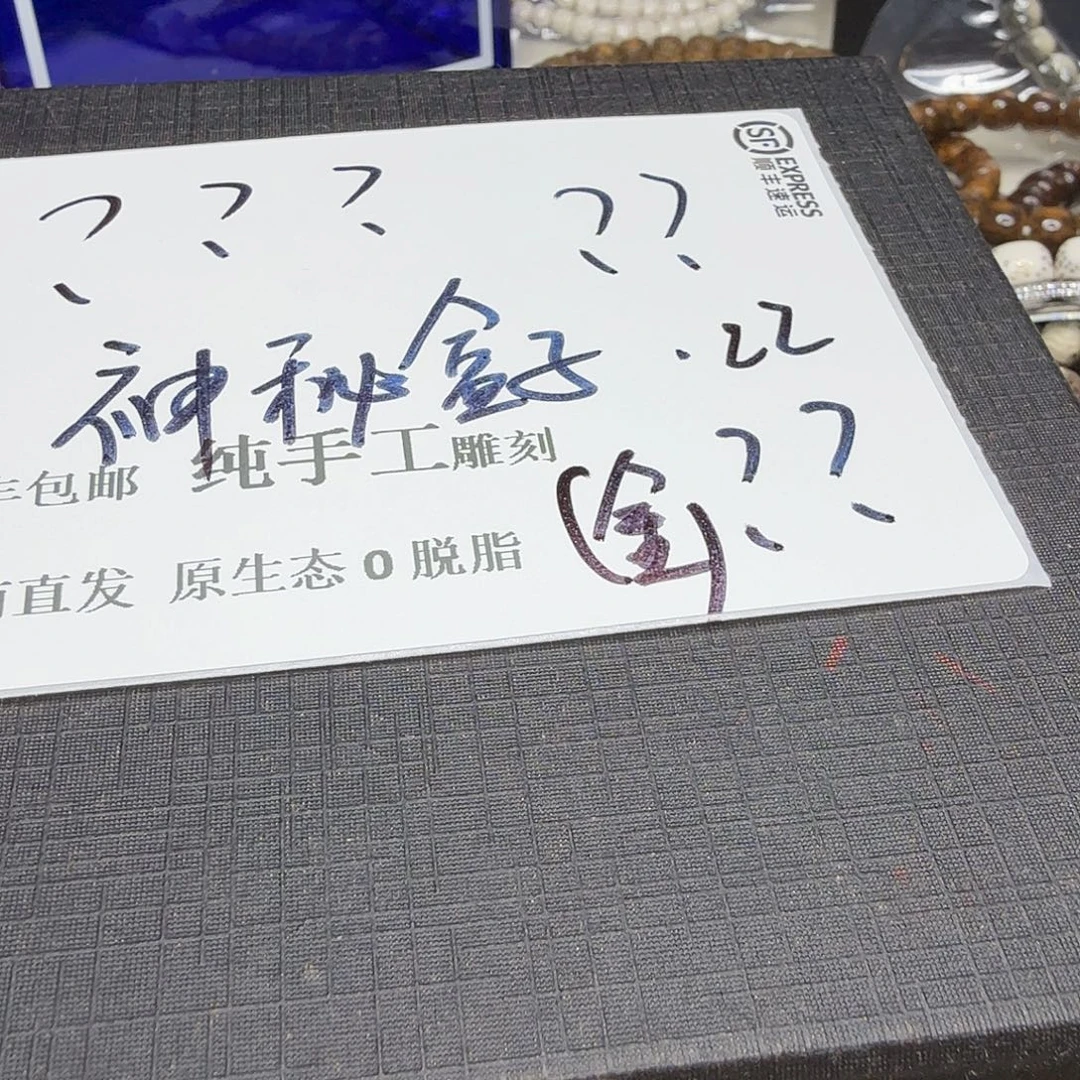 SF EXPRESS
顺丰速运
? ? ? ??
神秘盒子
??
包邮 纯手工雕刻
直发 原生态0脱脂